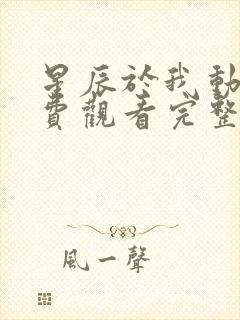 星辰於我動
費觀看完整
風一聲